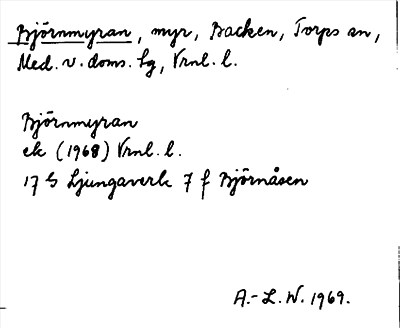 Björnmyran, myr, Backen, Torps sn,
Med. v. doms. lg, Vrnl. l.
Björnmyran
ek (1968) Vrnl. l.
17 G Ljungaverk 7 f Björnåsen
A.-L. W. 1969.